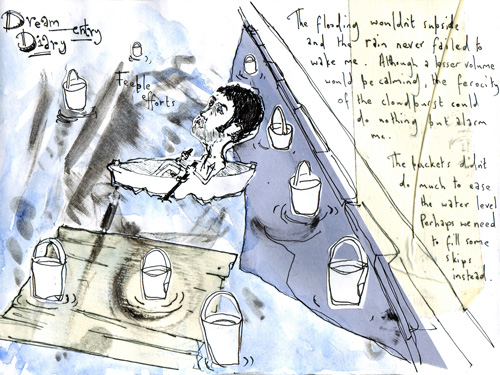 Dream entry
Diary
Feeble
efforts
The flooding wouldn't subside
and the rain never failed to
wake me. Although a lesser volume
would be calming, the ferocity
of the cloudburst could
do nothing but alarm
me.
The buckets didn't
do much to ease
the water level
Perhaps we need
to fill some
skips
instead.